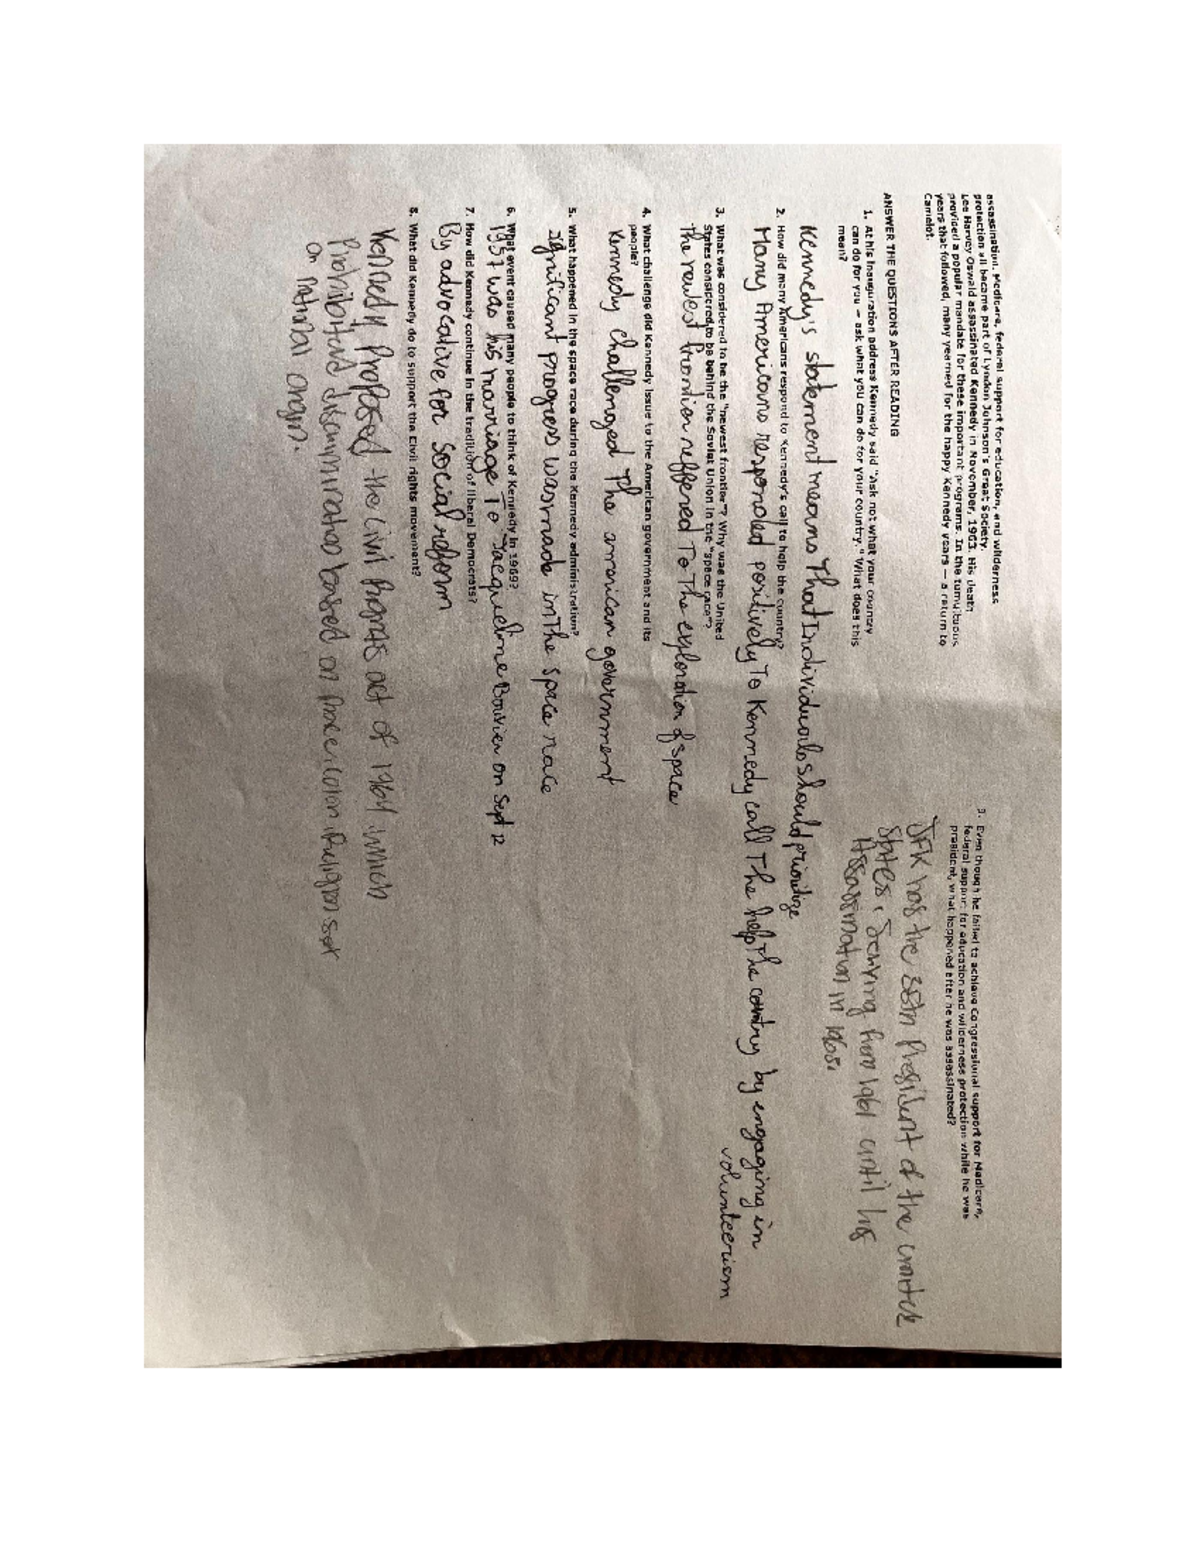 assassination. Medicare, federal support for education, and wilderness
protection all became part of Lyndon Johnson's Great Society.
Lee Harvey Oswald assassinated Kennedy in November, 1963. His death
provided a popular mandate for these important programs. In the tumultuous
years that followed, many yearned for the happy Kennedy years — a return to
Camelot.
ANSWER THE QUESTIONS AFTER READING
1. At his inauguration address Kennedy said "Ask not what your country
can do for you — ask what you can do for your country." What does this
mean?
Kennedy's statement means That Individuals should prioritize
2. How did many Americans respond to Kennedy's call to help the country?
Many Americans responded positively To Kennedy call The help The country by engaging in
volunteerism
3. What was considered to be the "newest frontier"? Why was the United
States considered to be behind the Soviet Union in the "space race"?
The newest frontier reffered To The exploration of space
4. What challenge did Kennedy issue to the American government and its
people?
Kennedy challenged The american government
5. What happened in the space race during the Kennedy administration?
significant progress was made in The space race
6. What event caused many people to think of Kennedy in 1969?
1957 was his marriage To "Jacqueline Bouvier on Sept 12
7. How did Kennedy continue in the tradition of liberal Democrats?
By advocative for social reform
8. What did Kennedy do to support the Civil rights movement?
Kennedy Proposed the Civil Rights act of 1964 which
Prohibited discrimination based on Race, Color, Religion set
on national origin.
9. Even though he failed to achieve Congressional support for Medicare,
federal support for education and wilderness protection while he was
president, what happened after he was assassinated?
JFK has the 35th President of the
states, serving from 1961 until his
Assassination in 1963.